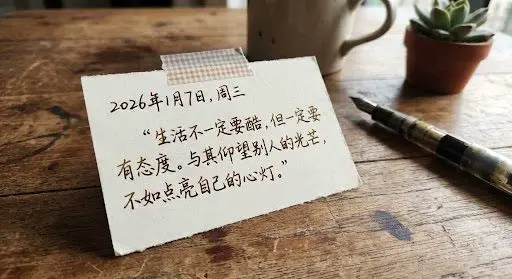 2026年1月7日，周三
“生活不一定要酷，但一定要
有态度。与其仰望别人的光芒，
不如点亮自己的心灯。”